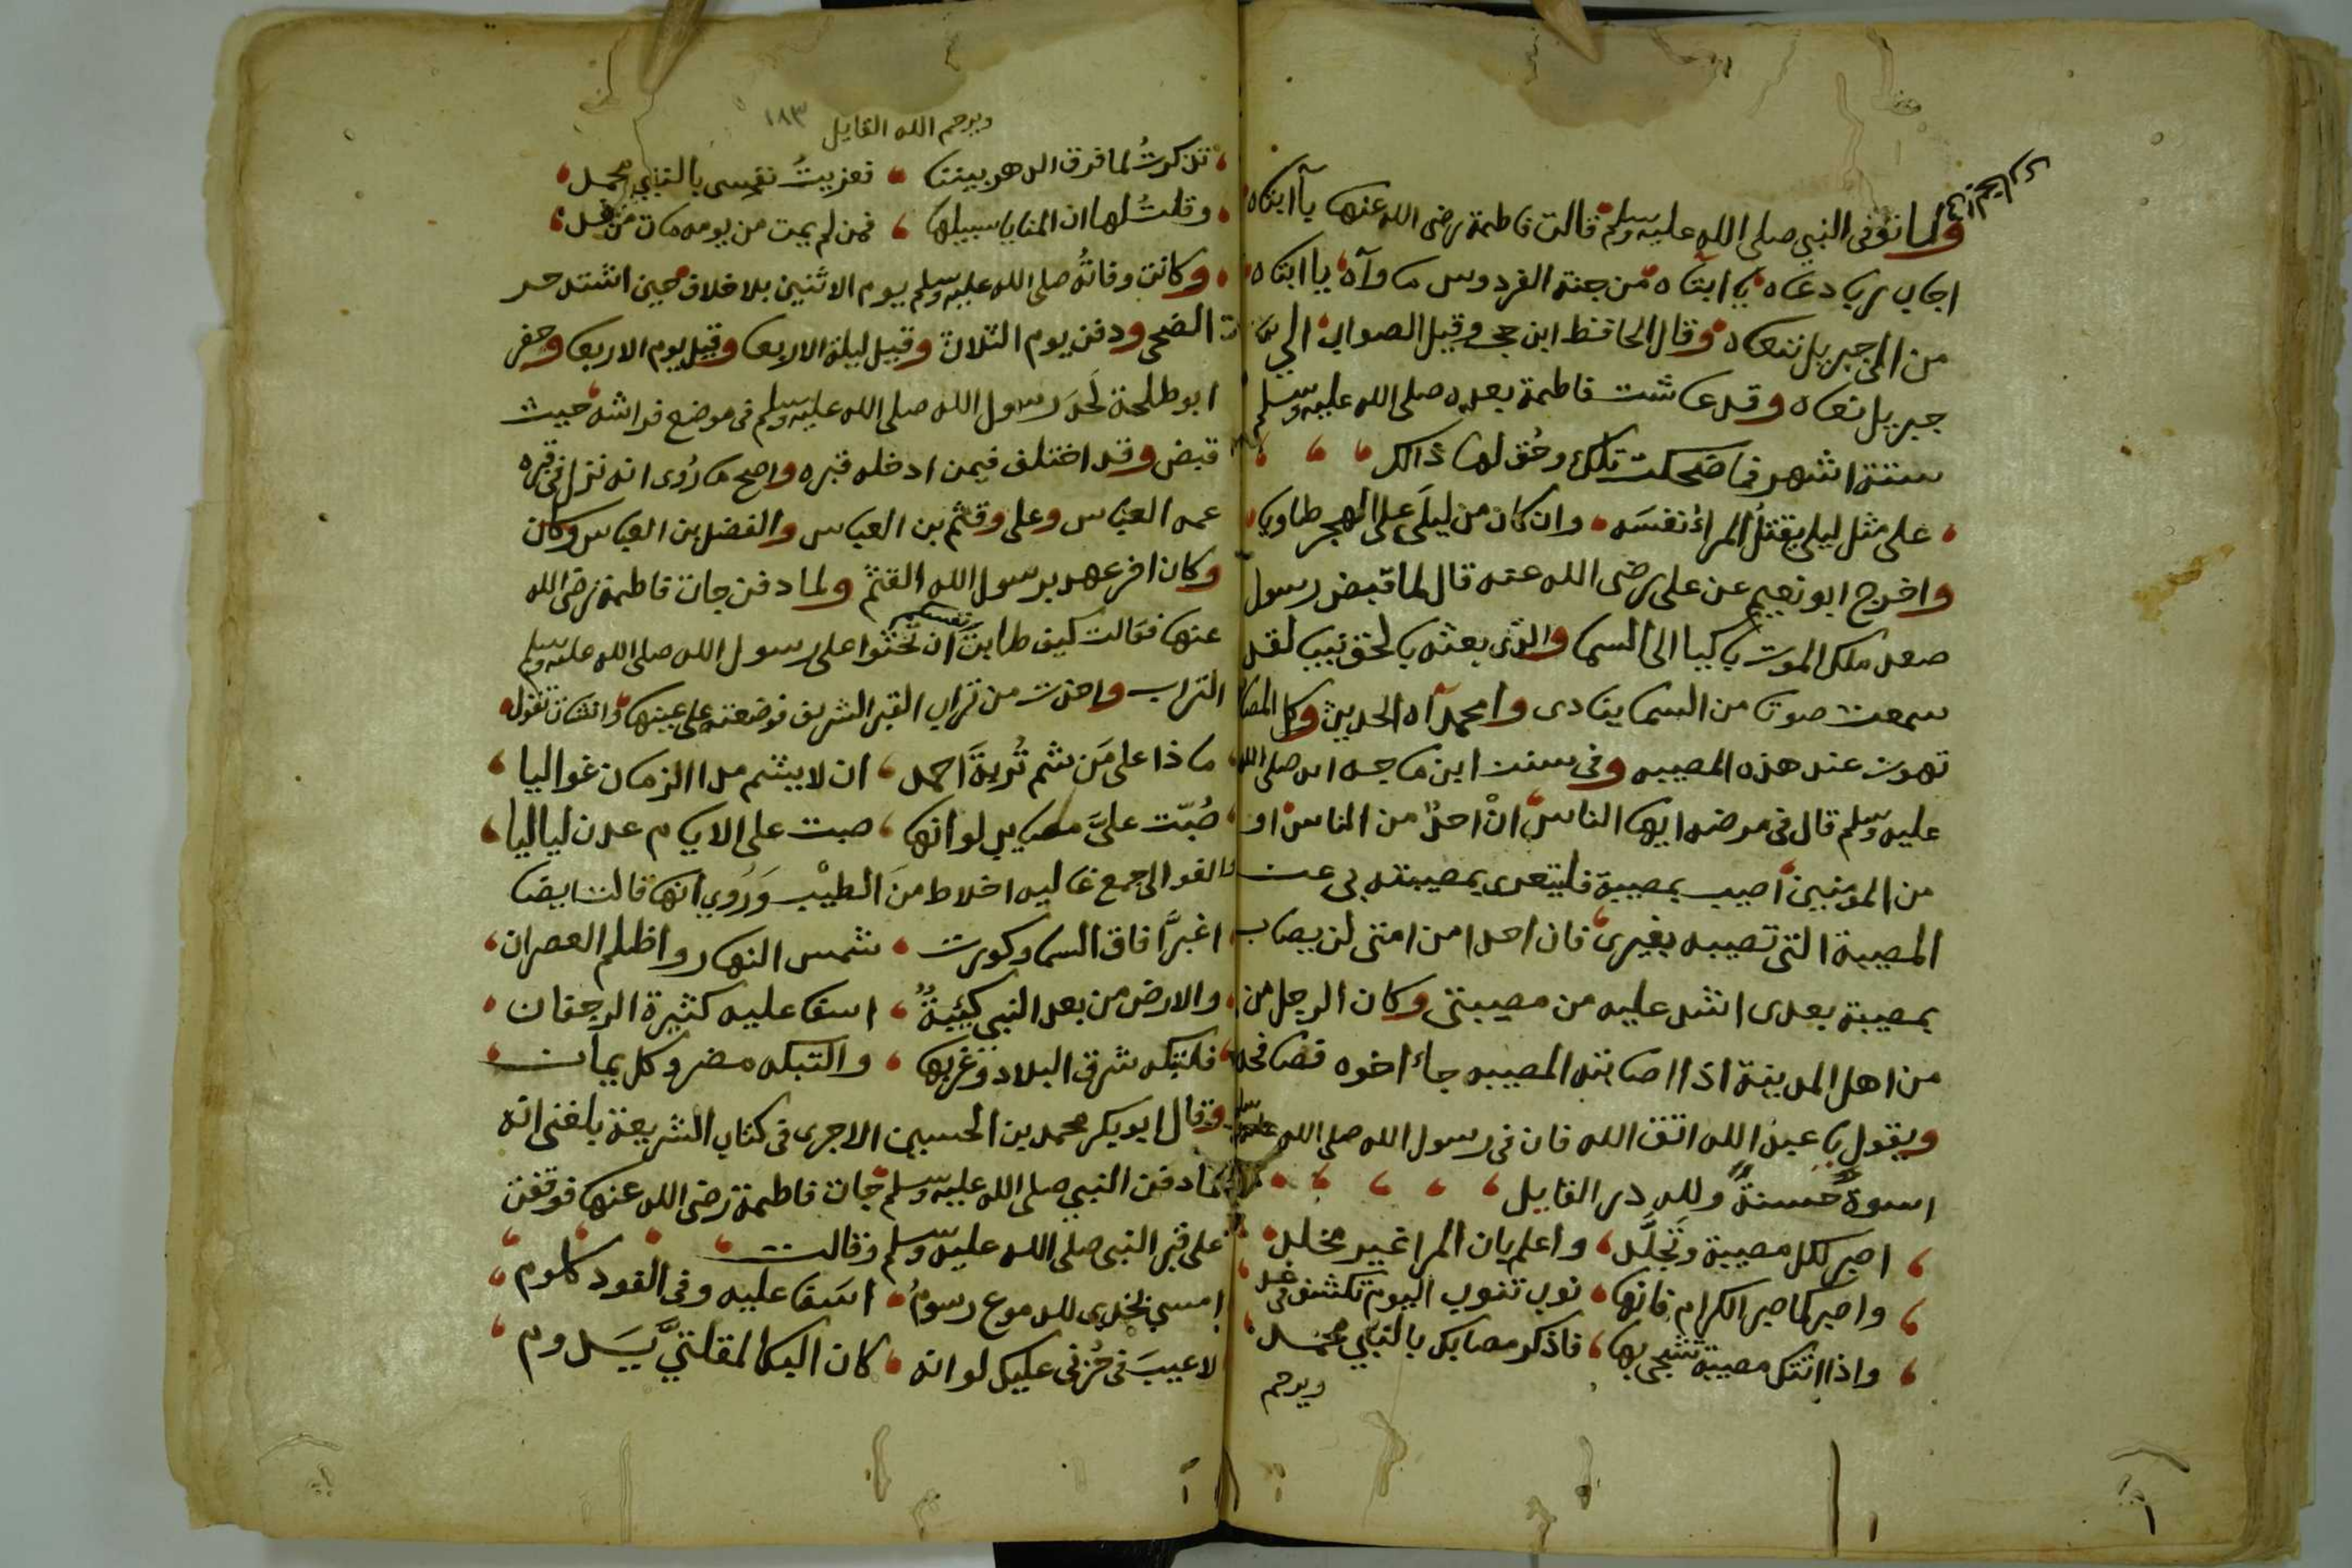 ولما توفى النبي صلى الله عليه وسلم قالت فاطمة رضى الله عنها يآ ابتاه
اجاب ربا دعاه يا ابتاه من جنة الفردوس ماوآه يا ابتاه
من الى جبريل ننعاه وقال الحافظ ابن حجر وقيل الصواب الى
جبريل نعاه وقد عاشت فاطمة بعده صلى الله عليه وسلم
ستة اشهر فما ضحكت تلك وحُق لها ذالك
على مثل ليلى يقتلُ المراُ نفسَه وان كان من ليلَى على الهجر طاويا
واخرج ابو نعيم عن على رضى الله عنه قال لما قبض رسول
صعد ملك الموت باكيا الى السما والذى بعثه بالحق نبيا لقد
سمعت صوتا من السما ينادى وامحمدآه الحديث وكل المصا
تهون عند هذه المصيبه وفى سنن ابن ماجه انه صلى الله
عليه وسلم قال فى مرضه ايها الناس انْ احدٌ من الناس او
من المومنين اصيب بمصيبة فليتعزى بمصيبته بى عن
المصيبة التى تصيبه بغيرى فان احدا من امتى لن يصاب
بمصيبة بعدى اشد عليه من مصيبتى وكان الرجل من
من اهل المدينة اذا اصابته المصيبه جاء اخوه فصافحه
ويقول يا عبد الله اتق الله فان فى رسول الله صلى الله عليه وسلم
اسوةٌ حسنةٌ ولله در القايل
اصبر لكل مصيبة وتَجلَّد واعلم بان المرا غير مخلد
واصبر كما صبر الكرام فانها نوب تنوب اليوم تكشف فى غد
واذا اتتك مصيبة تشجى بها فاذكر مصابك بالنبي محمد
ويرحم
ويرحم الله القايل ١٨٣
تذكرتُ لما فرق الدهر بيننا فعزيتُ نفسى بالنبي محمد
وقلتُ لها ان المنايا سبيلها فمن لم يمت من يومه مات من غد
وكانت وفاتُه صلى الله عليه وسلم يوم الاثنين بلا خلاف حين اشتد حر
الضحى ودفن يوم الثلاث وقيل ليلة الاربعا وقيل يوم الاربعا وحفر
ابو طلحة لَحَد رسول الله صلى الله عليه وسلم فى موضع فراشه حيث
قبض وقد اختلف فيمن ادخله قبره واصح ما رُوى انه نزل فى قبره
عمه العباس وعلى وقثم بن العباس والفضل بن العباس وكان
وكان اخر عهد برسول الله القثم ولما دفن جات فاطمة رضى الله
عنها فقالت كيف طابت نفسكم ان تحثوا على رسول الله صلى الله عليه وسلم
التراب واخذت من تراب القبر الشريف فوضعته على عينها وانشات تقول
ماذا على مَن شم تُربةَ احمد ان لا يشم مدا الزمان غواليا
صُبّت علىَّ مصايب لو انها صبت على الايام عدن لياليا
والغوالى جمع غاليه اخلاط منَ الطيْب وَرُوي انها قالت ايضا
اغبرَّ افاق السما وكورت شمس النهار واظلم العصران
والارض من بعد النبي كئيبةٌ اسفا عليه كثيرة الرجفان
فلتبكه شرق البلاد وغربها والتبكه مضر وكل يمان
وقال ابو بكر محمد بن الحسين الاجرى فى كتاب الشريعة بلغنى انه
لما دفن النبي صلى الله عليه وسلم جات فاطمة رضى الله عنها فوقفت
على قبر النبى صلى الله عليه وسلم وقالت
امسي بخدى للدموع رسومُ اسَفا عليه وفى الفود كلوم
لا عيبَ فى حُزنى عليك لو انه كان البكا لمقلتيَّ يَدوم